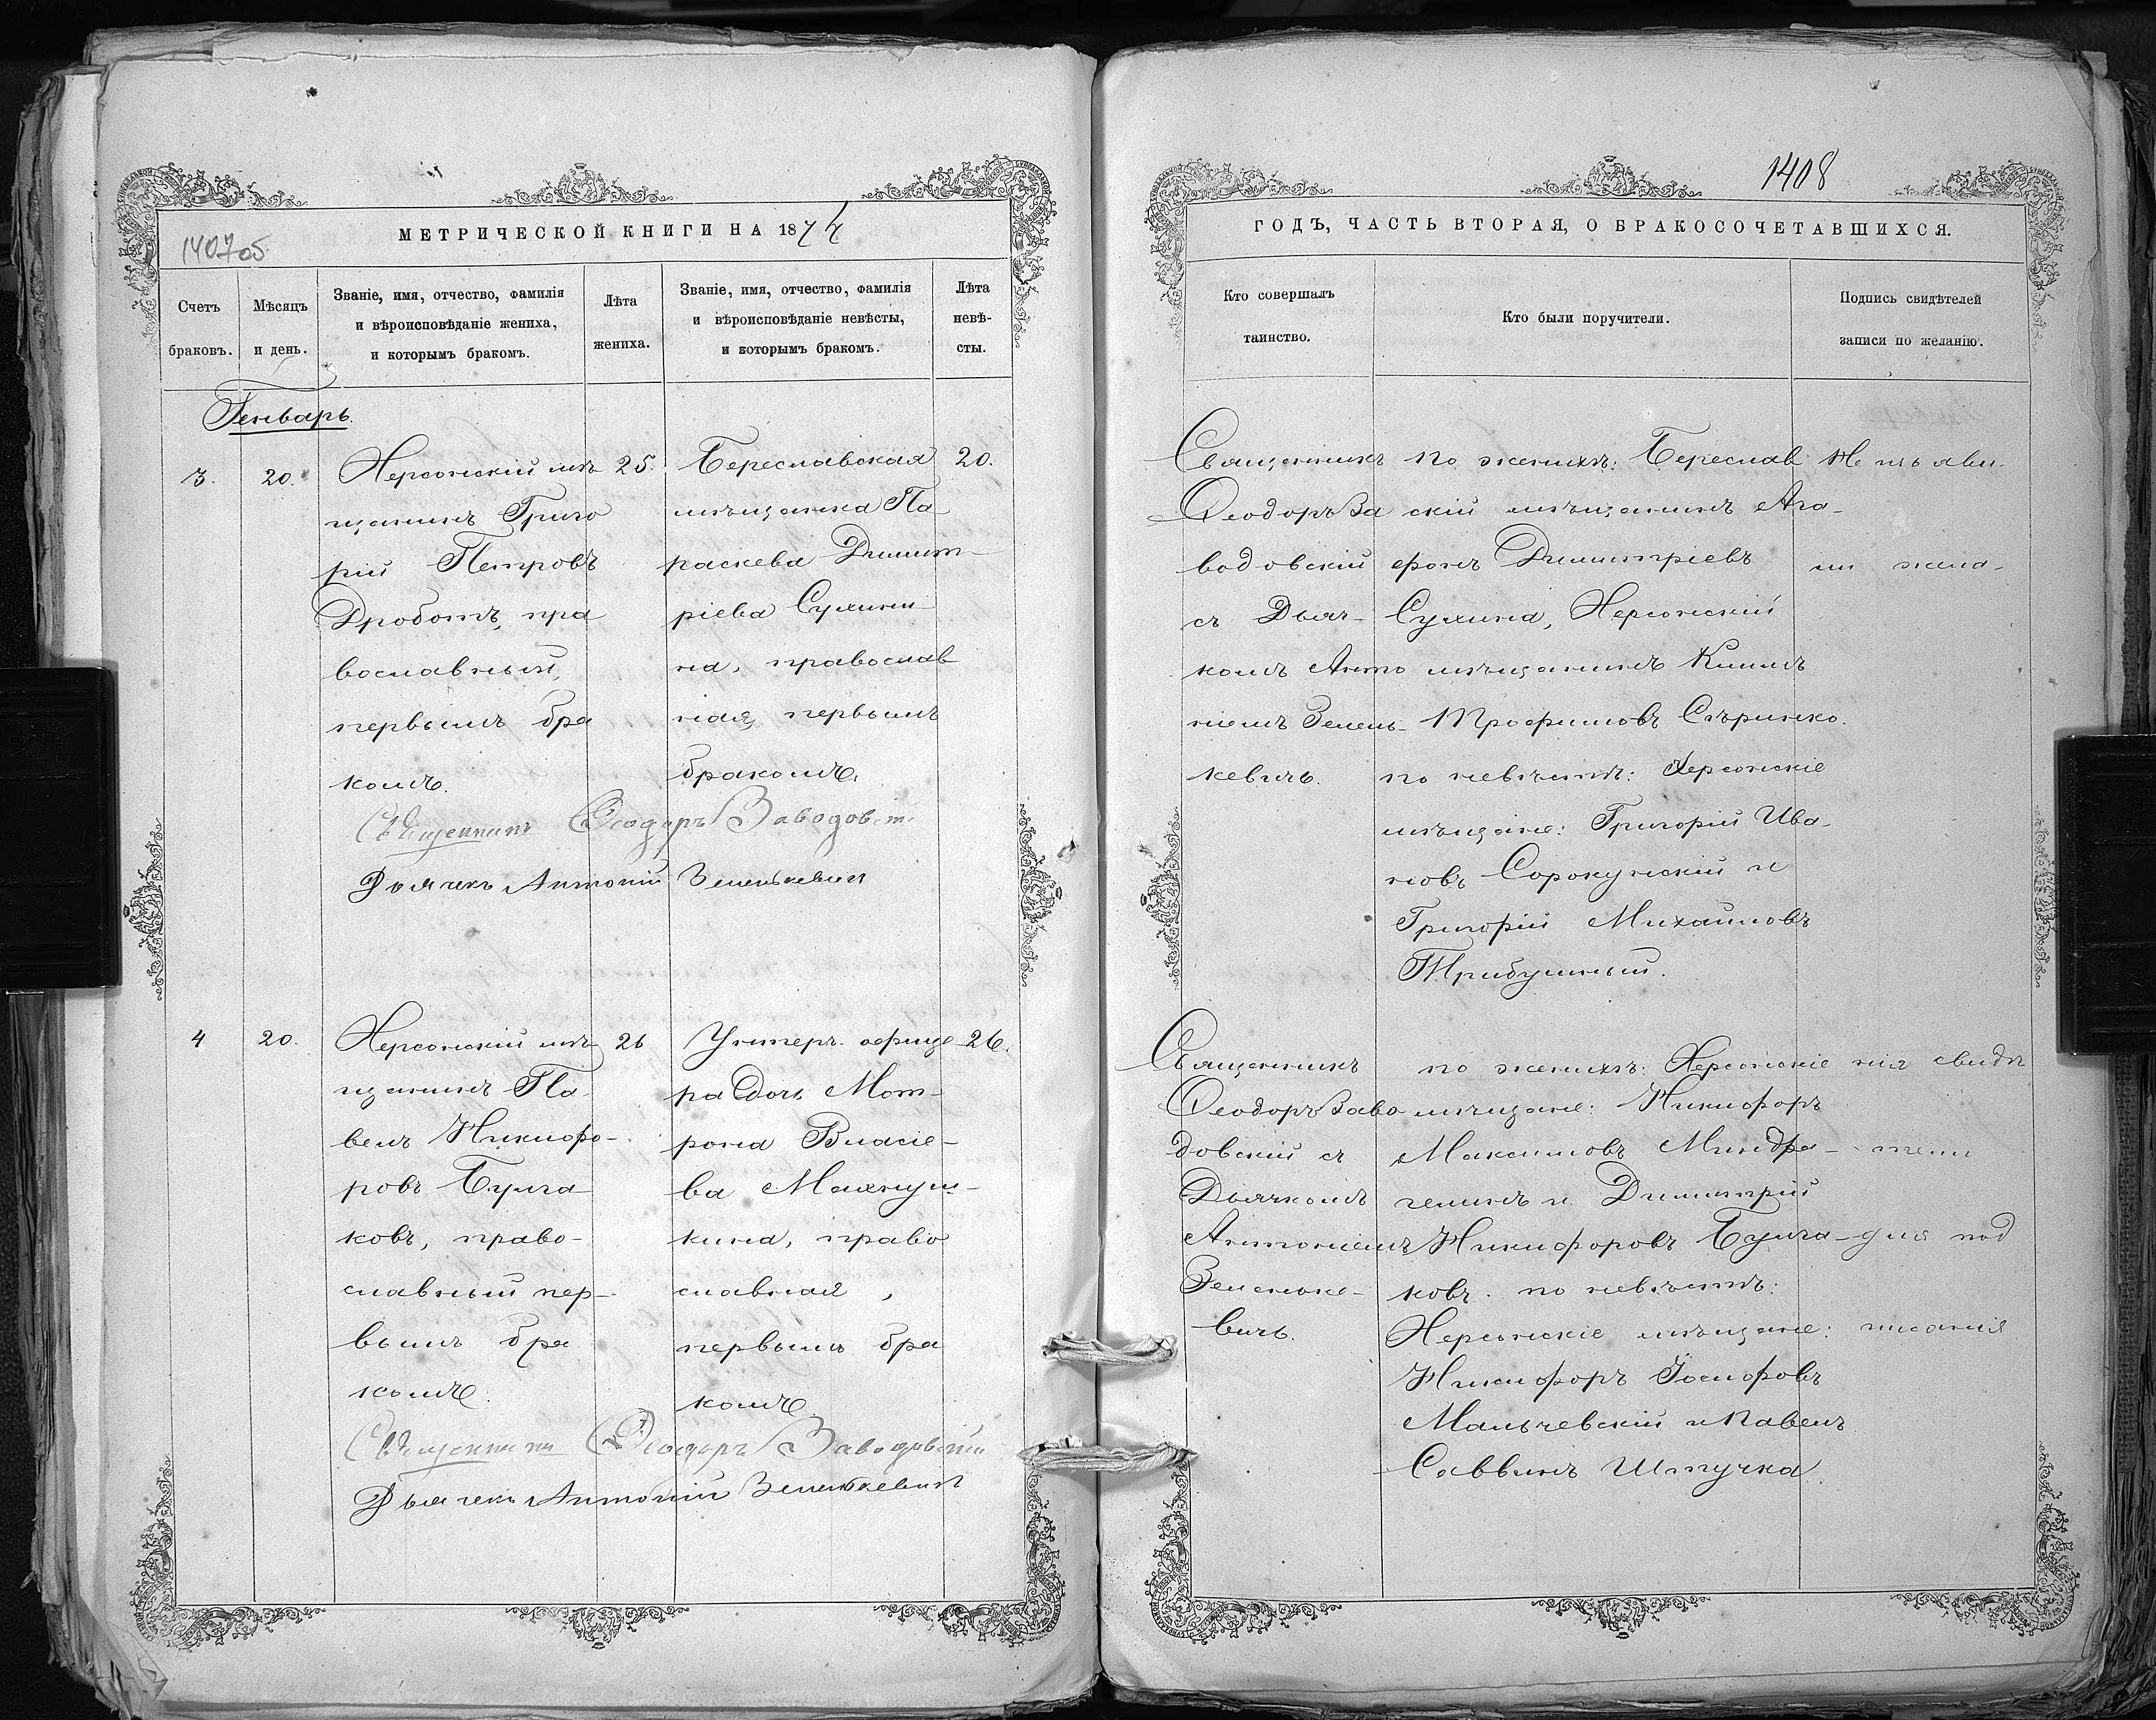 140705
МЕТРИЧЕСКОЙ КНИГИ НА 1874
Счетъ браковъ.
Мѣсяцъ и день.
Званіе, имя, отчество, фамилія
и вѣроисповѣданіе жениха,
и которымъ бракомъ.
Лѣта жениха.
Званіе, имя, отчество, фамилія
и вѣроисповѣданіе невѣсты,
и которымъ бракомъ.
Лѣта невѣ-
сты.
Генварь.
3.
20.
Херсонскій мѣ
щанинъ Григо
рій Петровъ
Дроботъ, пра
вославный,
первымъ бра
комъ.
25.
Береславская
мѣщанка Па
раскева Димит-
ріева Сухини-
на, православ
ная, первымъ
бракомъ.
20.
Священникъ Ѳеодоръ Заводовскій
Дьячекъ Антоній Зеленкевичъ
4
20.
Херсонскій мѣ
щанинъ Па
велъ Никифо-
ровъ Булга
ковъ, право-
славный пер-
вымъ бра
комъ.
26
Унтеръ. офице
ра дочь Мат-
рона Власіе-
ва Махнуш-
кина, право
славная,
первымъ бра
комъ.
26.
Священникъ Ѳеодоръ Заводовскій
Дьячекъ Антоній Зеленкевичъ
1408
ГОДЪ, ЧАСТЬ ВТОРАЯ, О БРАКОСОЧЕТАВШИХСЯ.
Кто совершалъ
таинство.
Кто были поручители.
Подпись свидѣтелей
записи по желанію.
Священникъ
Ѳеодоръ За
водовскій
съ Дьяч-
комъ Анто
ніемъ Зелень-
кевичъ.
по женихѣ: Береслав
скій мѣщанинъ Ага-
фонъ Димитріевъ
Сухина, Херсонскій
мѣщанинъ Климъ
Трофимовъ Сѣринко.
по невѣстѣ: Херсонскіе
мѣщане: Григорій Ива-
новъ Сорокунскій и
Григорій Михаиловъ
Трибушный.
Не изъяви-
ли жела-
Священникъ
Ѳеодоръ Заво
довскій съ
Дьячкомъ
Антоніемъ
Зеленьке-
вичъ.
по женихѣ: Херсонскіе
мѣщане: Никифоръ
Максимовъ Миндра-
гелинъ и Димитрій
Никифоровъ Булга-
ковъ. по невѣстѣ:
Херсонскіе мѣщане:
Никифоръ Іосифовъ
Мальчевскій и Павелъ
Саввинъ Штучка.
нія свидѣ
тели
для под
писанія